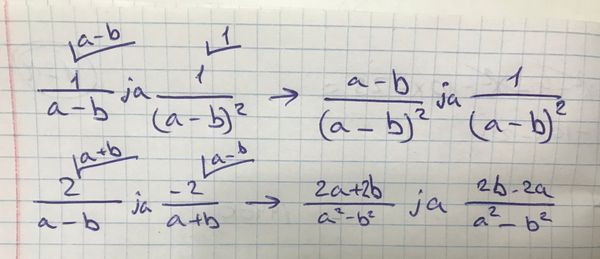 a-b 1
1/(a-b) ja 1/(a-b)² → (a-b)/(a-b)² ja 1/(a-b)²
a+b a-b
2/(a-b) ja -2/(a+b) → (2a+2b)/(a²-b²) ja (2b-2a)/(a²-b²)